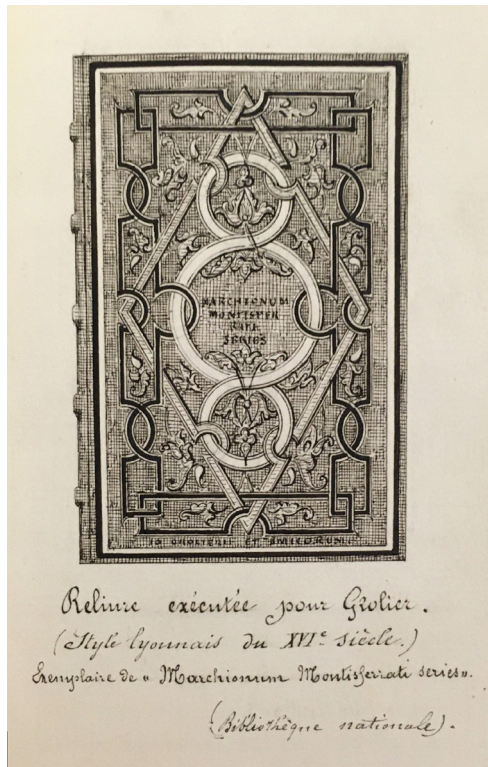 MARCHIONUM
MONTISFER
RATI
SERIES
IO GROLIERII ET AMICORUM
Reliure exécutée pour Grolier.
(Style lyonnais du XVIe siècle.)
Exemplaire de « Marchionum Montisferrati series ».
(Bibliothèque nationale).